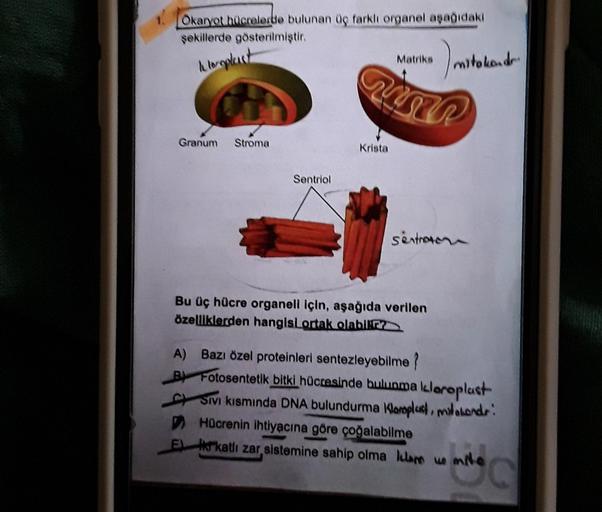 1. Ökaryot hücrelerde bulunan üç farklı organel aşağıdaki
şekillerde gösterilmiştir.
kloroplast
Matriks
mitokondr
Granum Stroma
Krista
Sentriol
sentrozom
Bu üç hücre organeli için, aşağıda verilen
özelliklerden hangisi ortak olabilir?
A) Bazı özel proteinleri sentezleyebilme ?
B) Fotosentetik bitki hücresinde bulunma kloroplast
C) Sıvı kısmında DNA bulundurma kloroplast, mitokondr
D) Hücrenin ihtiyacına göre çoğalabilme
E) İki katlı zar sistemine sahip olma kloro ve mito
ÜÇ